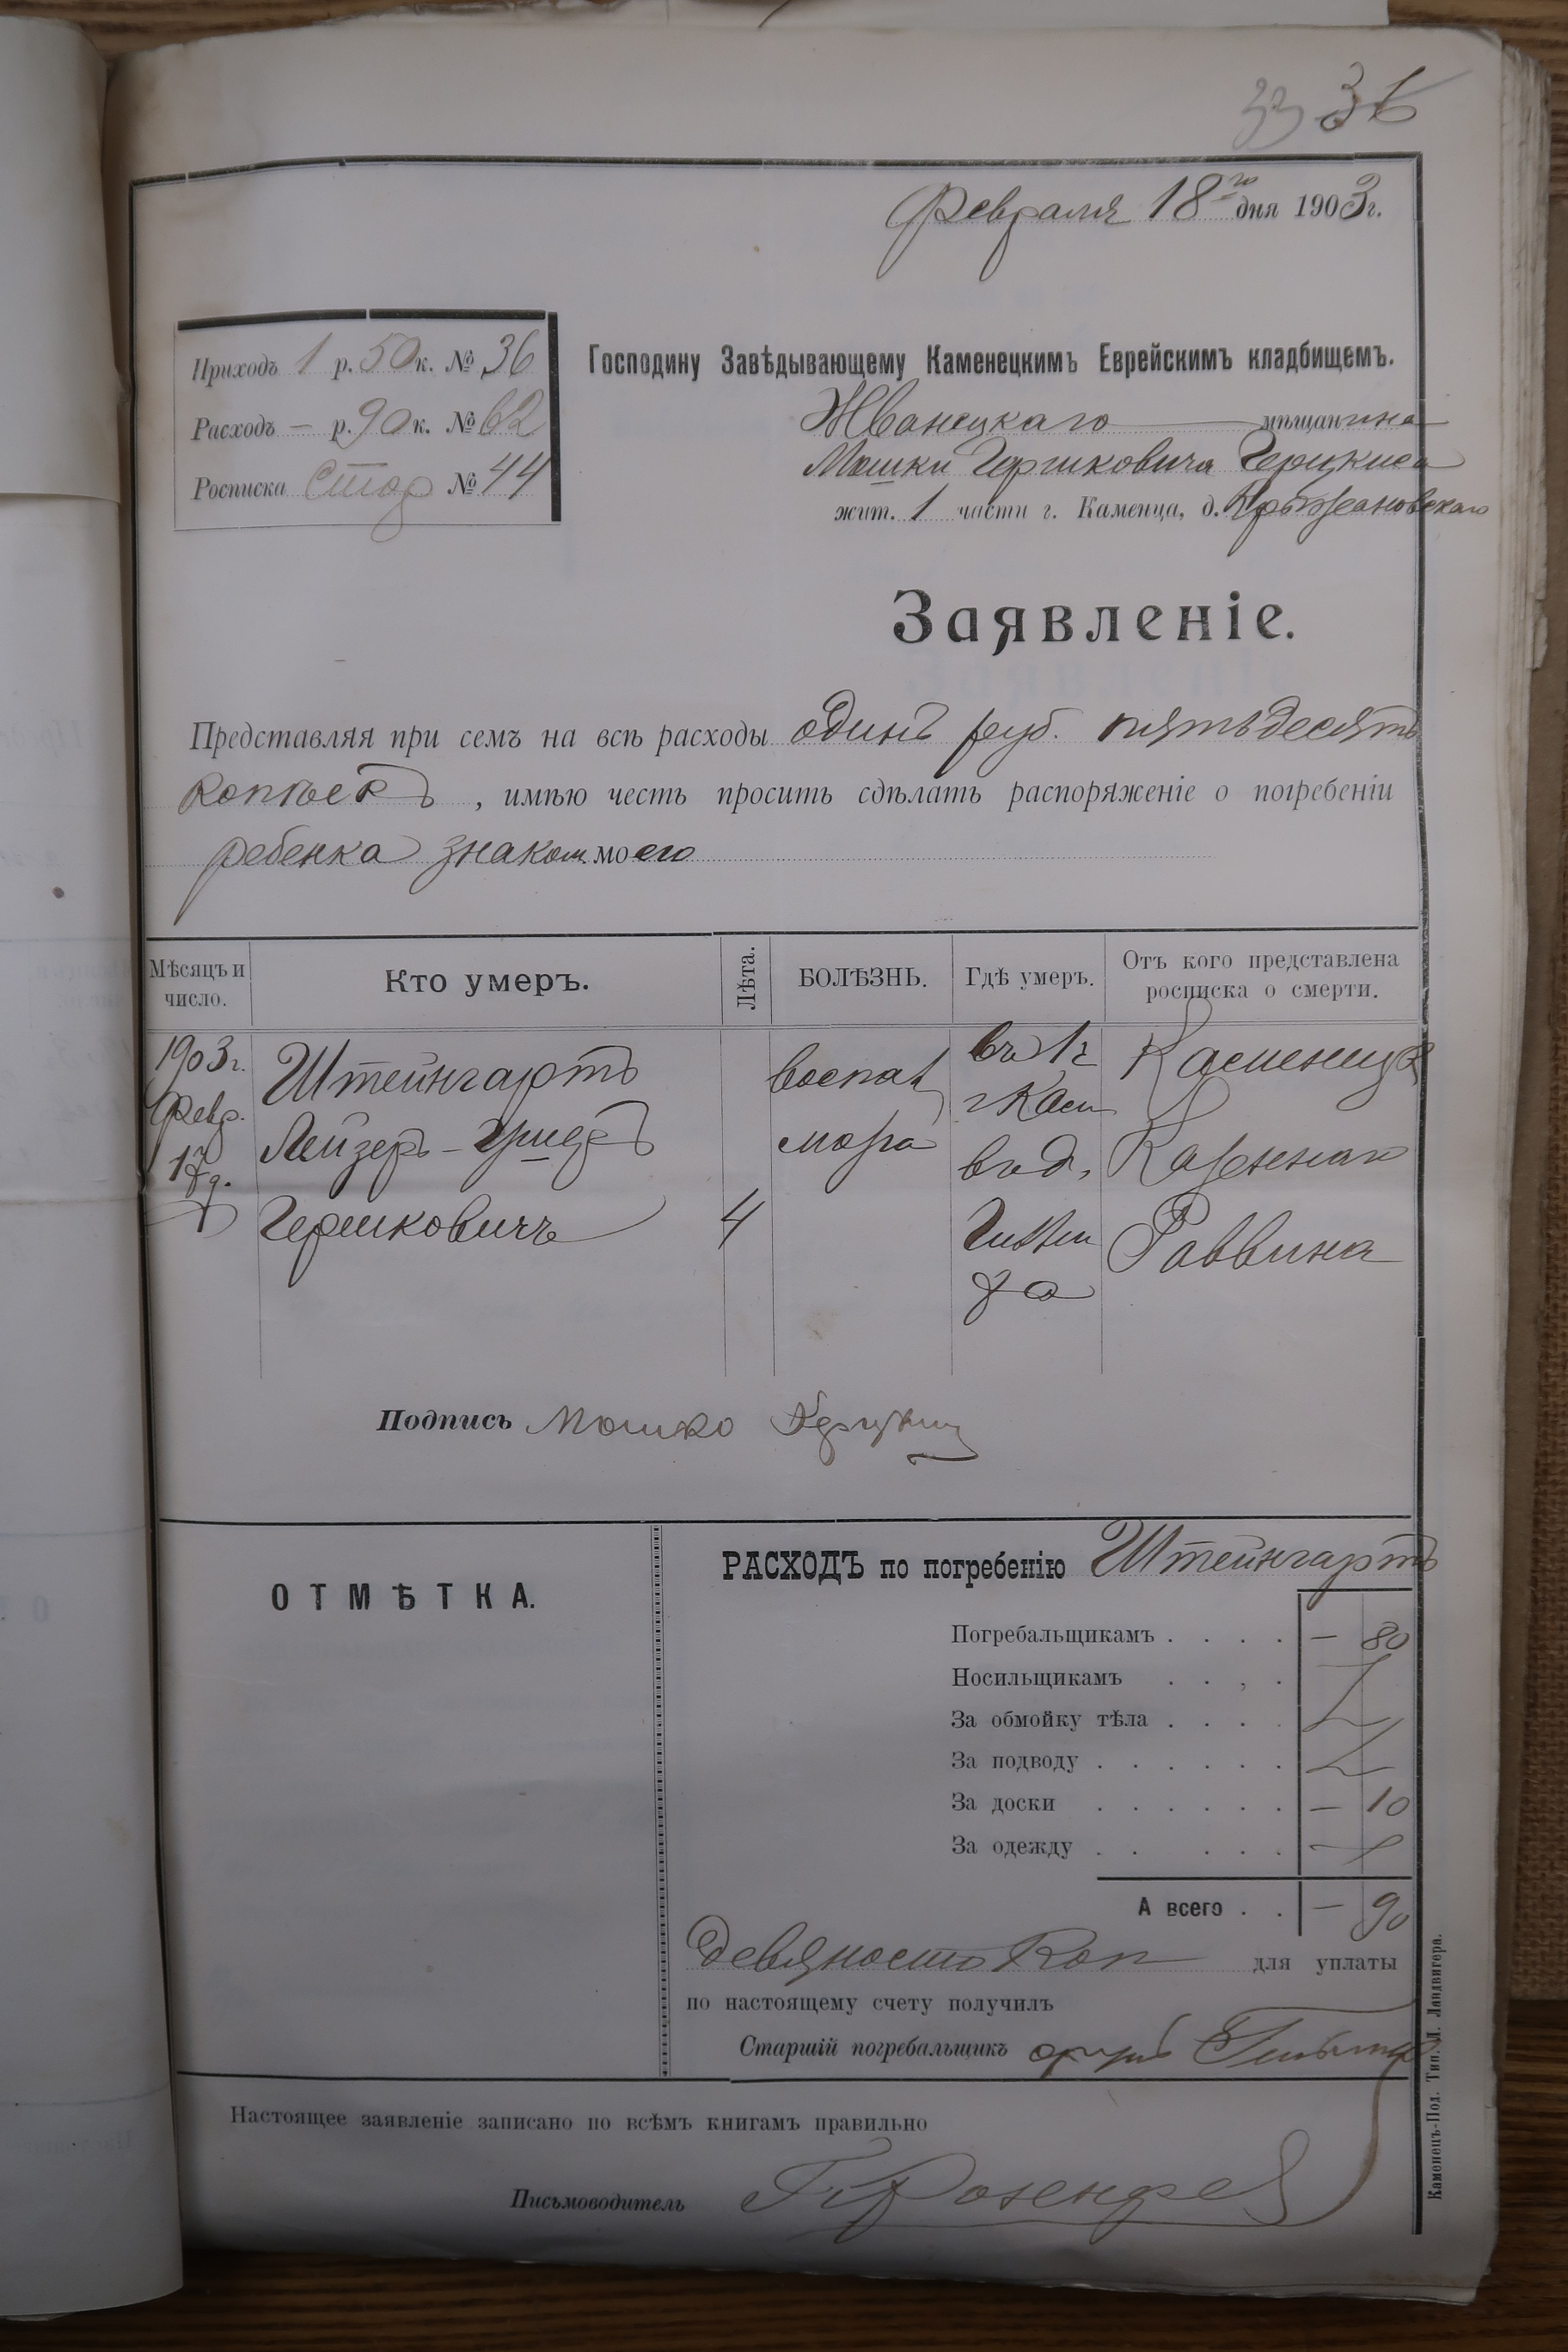 33 36
Февраля 18го дня 1903 г.
Приходъ 1 р. 50 к. № 36
Расходъ — р. 90 к. № 62
Росписка № 44
Господину Завѣдывающему Каменецкимъ Еврейскимъ кладбищемъ.
Жванецкаго мѣщанина
Мошки Гершковича
жит. 1 части г. Каменца, д. Кржижановскаго
Заявленіе.
Представляя при семъ на всѣ расходы одинъ руб. пятьдесятъ
копѣекъ, имѣю честь просить сдѣлать распоряженіе о погребеніи
ребенка знаком. моего
Мѣсяцъ и число.
Кто умеръ.
Лѣта.
БОЛѢЗНЬ.
Гдѣ умеръ.
Отъ кого представлена росписка о смерти.
1903 г.
Февр.
17 д.
Штейнгартъ
Лейзеръ-
Гершковичъ
4
воспал
мозга
въ 1 ч
г Кам
въ д.
Каменецк
Казенная
Раввина
Подпись Мошко
ОТМѢТКА.
РАСХОДЪ по погребенію Штейнгартъ
Погребальщикамъ . . . . — 80
Носильщикамъ . . , .
За обмойку тѣла . . . .
За подводу . . . . . .
За доски . . . . . . — 10
За одежду . . . . . . —
А всего . . — 90
Девяносто Коп для уплаты
по настоящему счету получилъ
Старшій погребальщикъ
Настоящее заявленіе записано по всѣмъ книгамъ правильно
Письмоводитель Розенфе
Каменецъ-Под. Тип. Л. Ландвигера.